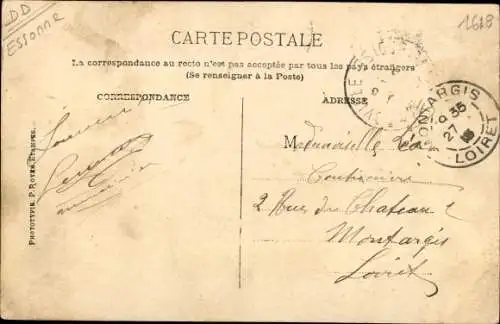 DD
ESSONNE
1618
CARTE POSTALE
La correspondance au recto n'est pas acceptée par tous les pays étrangers
(Se renseigner à la Poste)
CORRESPONDANCE
ADRESSE
MONTARGIS
9 35
27
LOIRET
Mademoiselle
Couturière
2 Rue du Chateau 2
Montargis
Loiret
PHOTOTYPIE P. ROYER, ÉTAMPES.